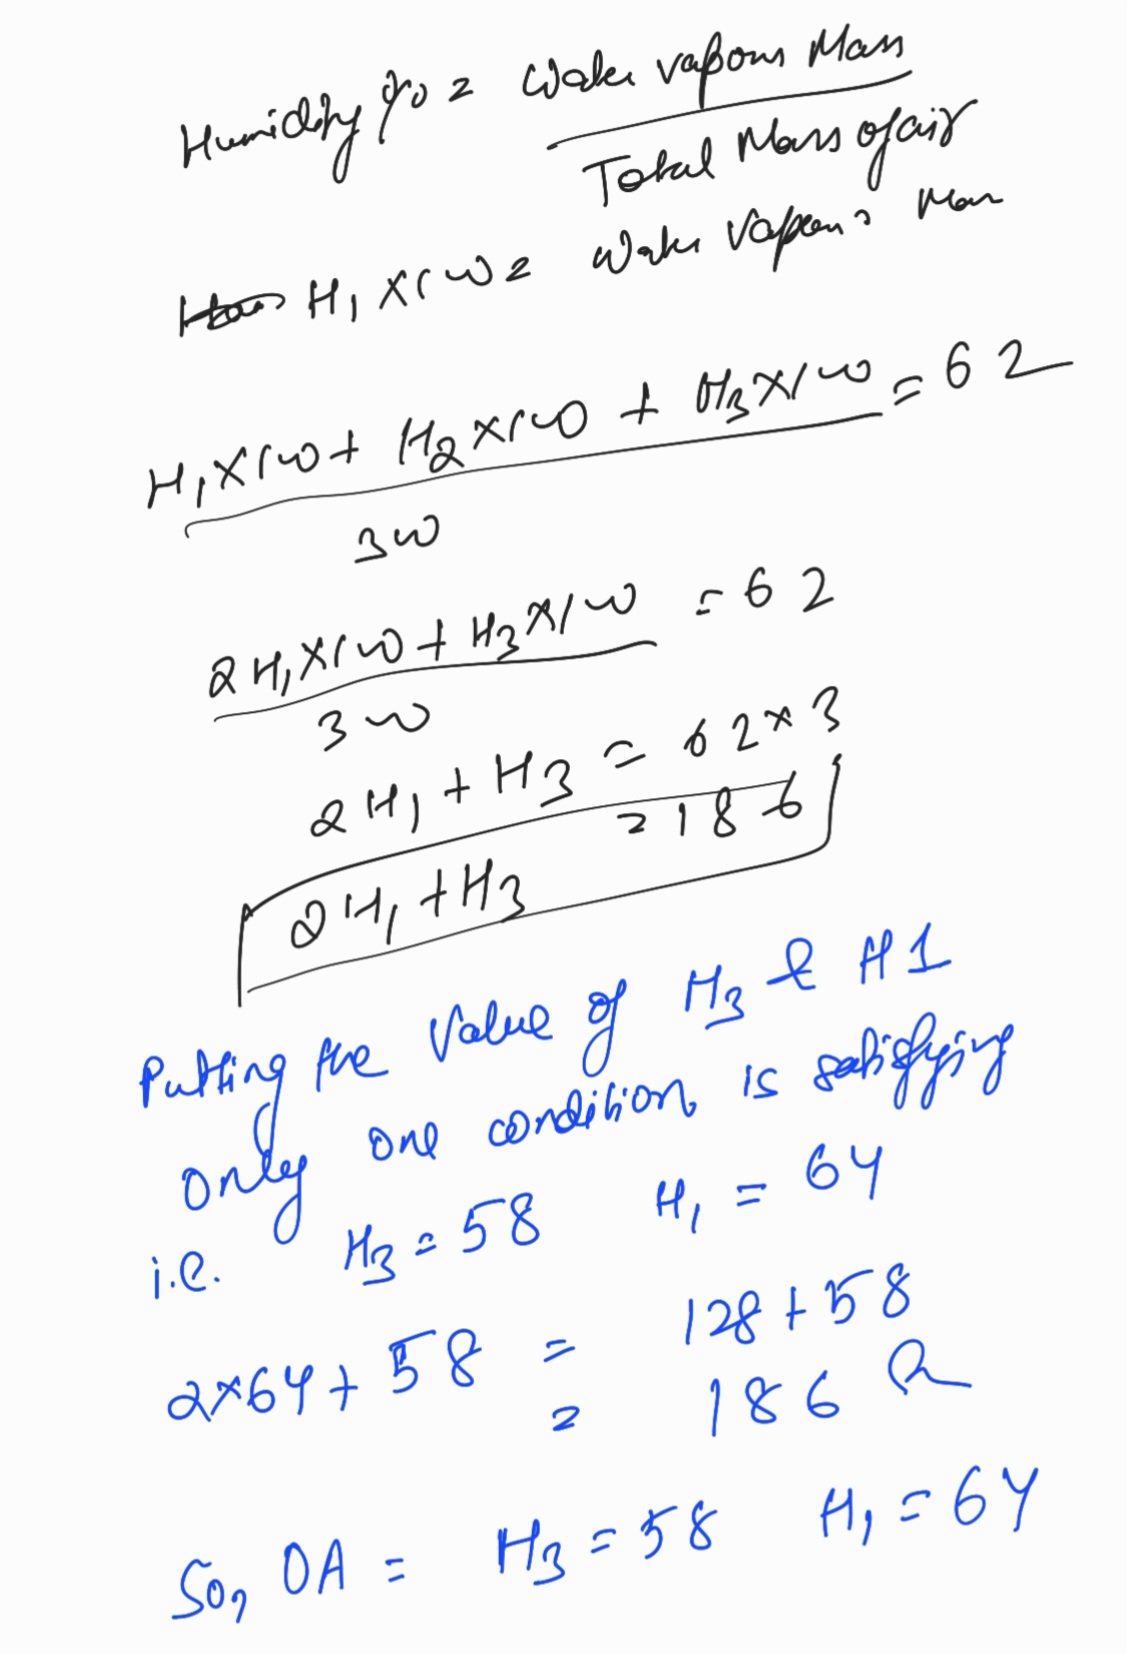 Humidity % = Water vapour Mass
Total Mass of air
H1 x 1W = Water Vapour Mass
H1x1W + H2x1W + H3x1W = 62
3W
2H1x1W + H3x1W = 62
3W
2H1 + H3 = 62x3
2H1 + H3 = 186
Putting the Value of H3 & H1
only one condition is satisfying
i.e. H3 = 58 H1 = 64
2x64 + 58 = 128 + 58
= 186
So, OA = H3 = 58 H1 = 64